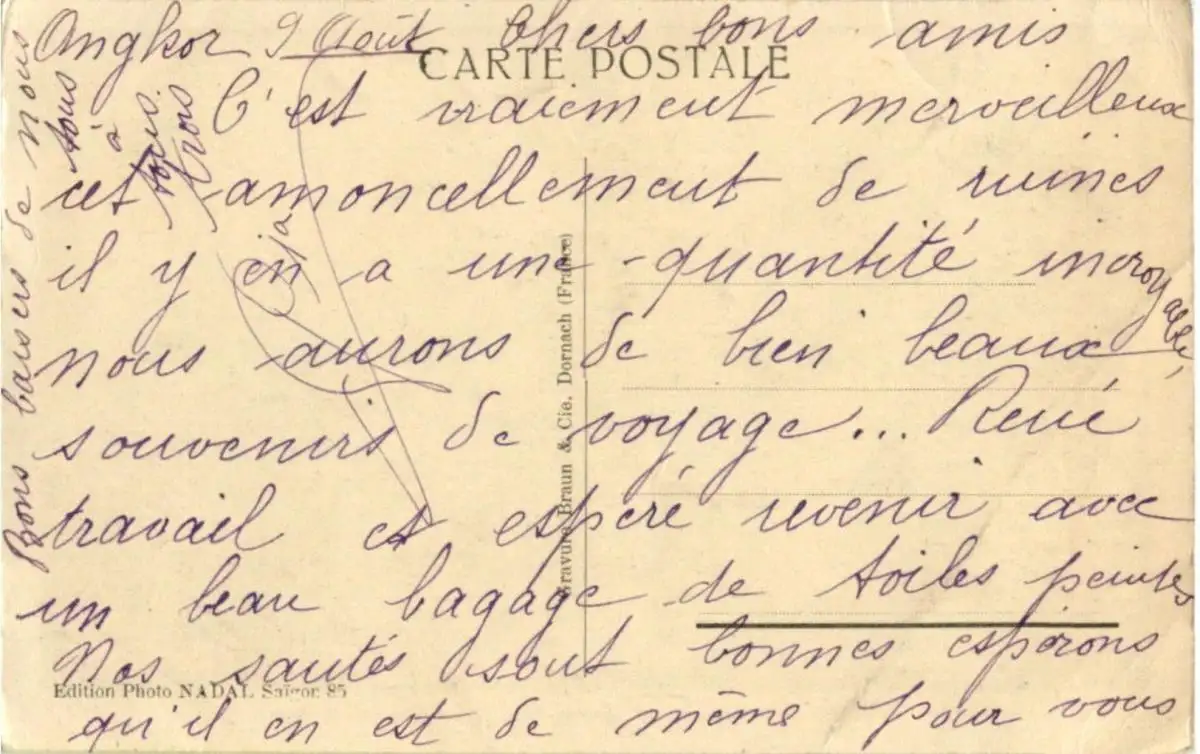 Angkor 9 Août Chers bons amis
CARTE POSTALE
C'est vraiement merveilleux
cet amoncellement de ruines
il y en a une quantité incroyable
nous aurons de bien beaux
souvenirs de voyage... René
travail et esperé revenir avec
un beau bagage de toiles peintes
Nos santés sont bonnes esperons
qu'il en est de même pour vous
Bons baisers de nous
tous
à
vous
trois
Gravure Braun & Cie. Dornach (France)
Edition Photo NADAL Saïgon 85